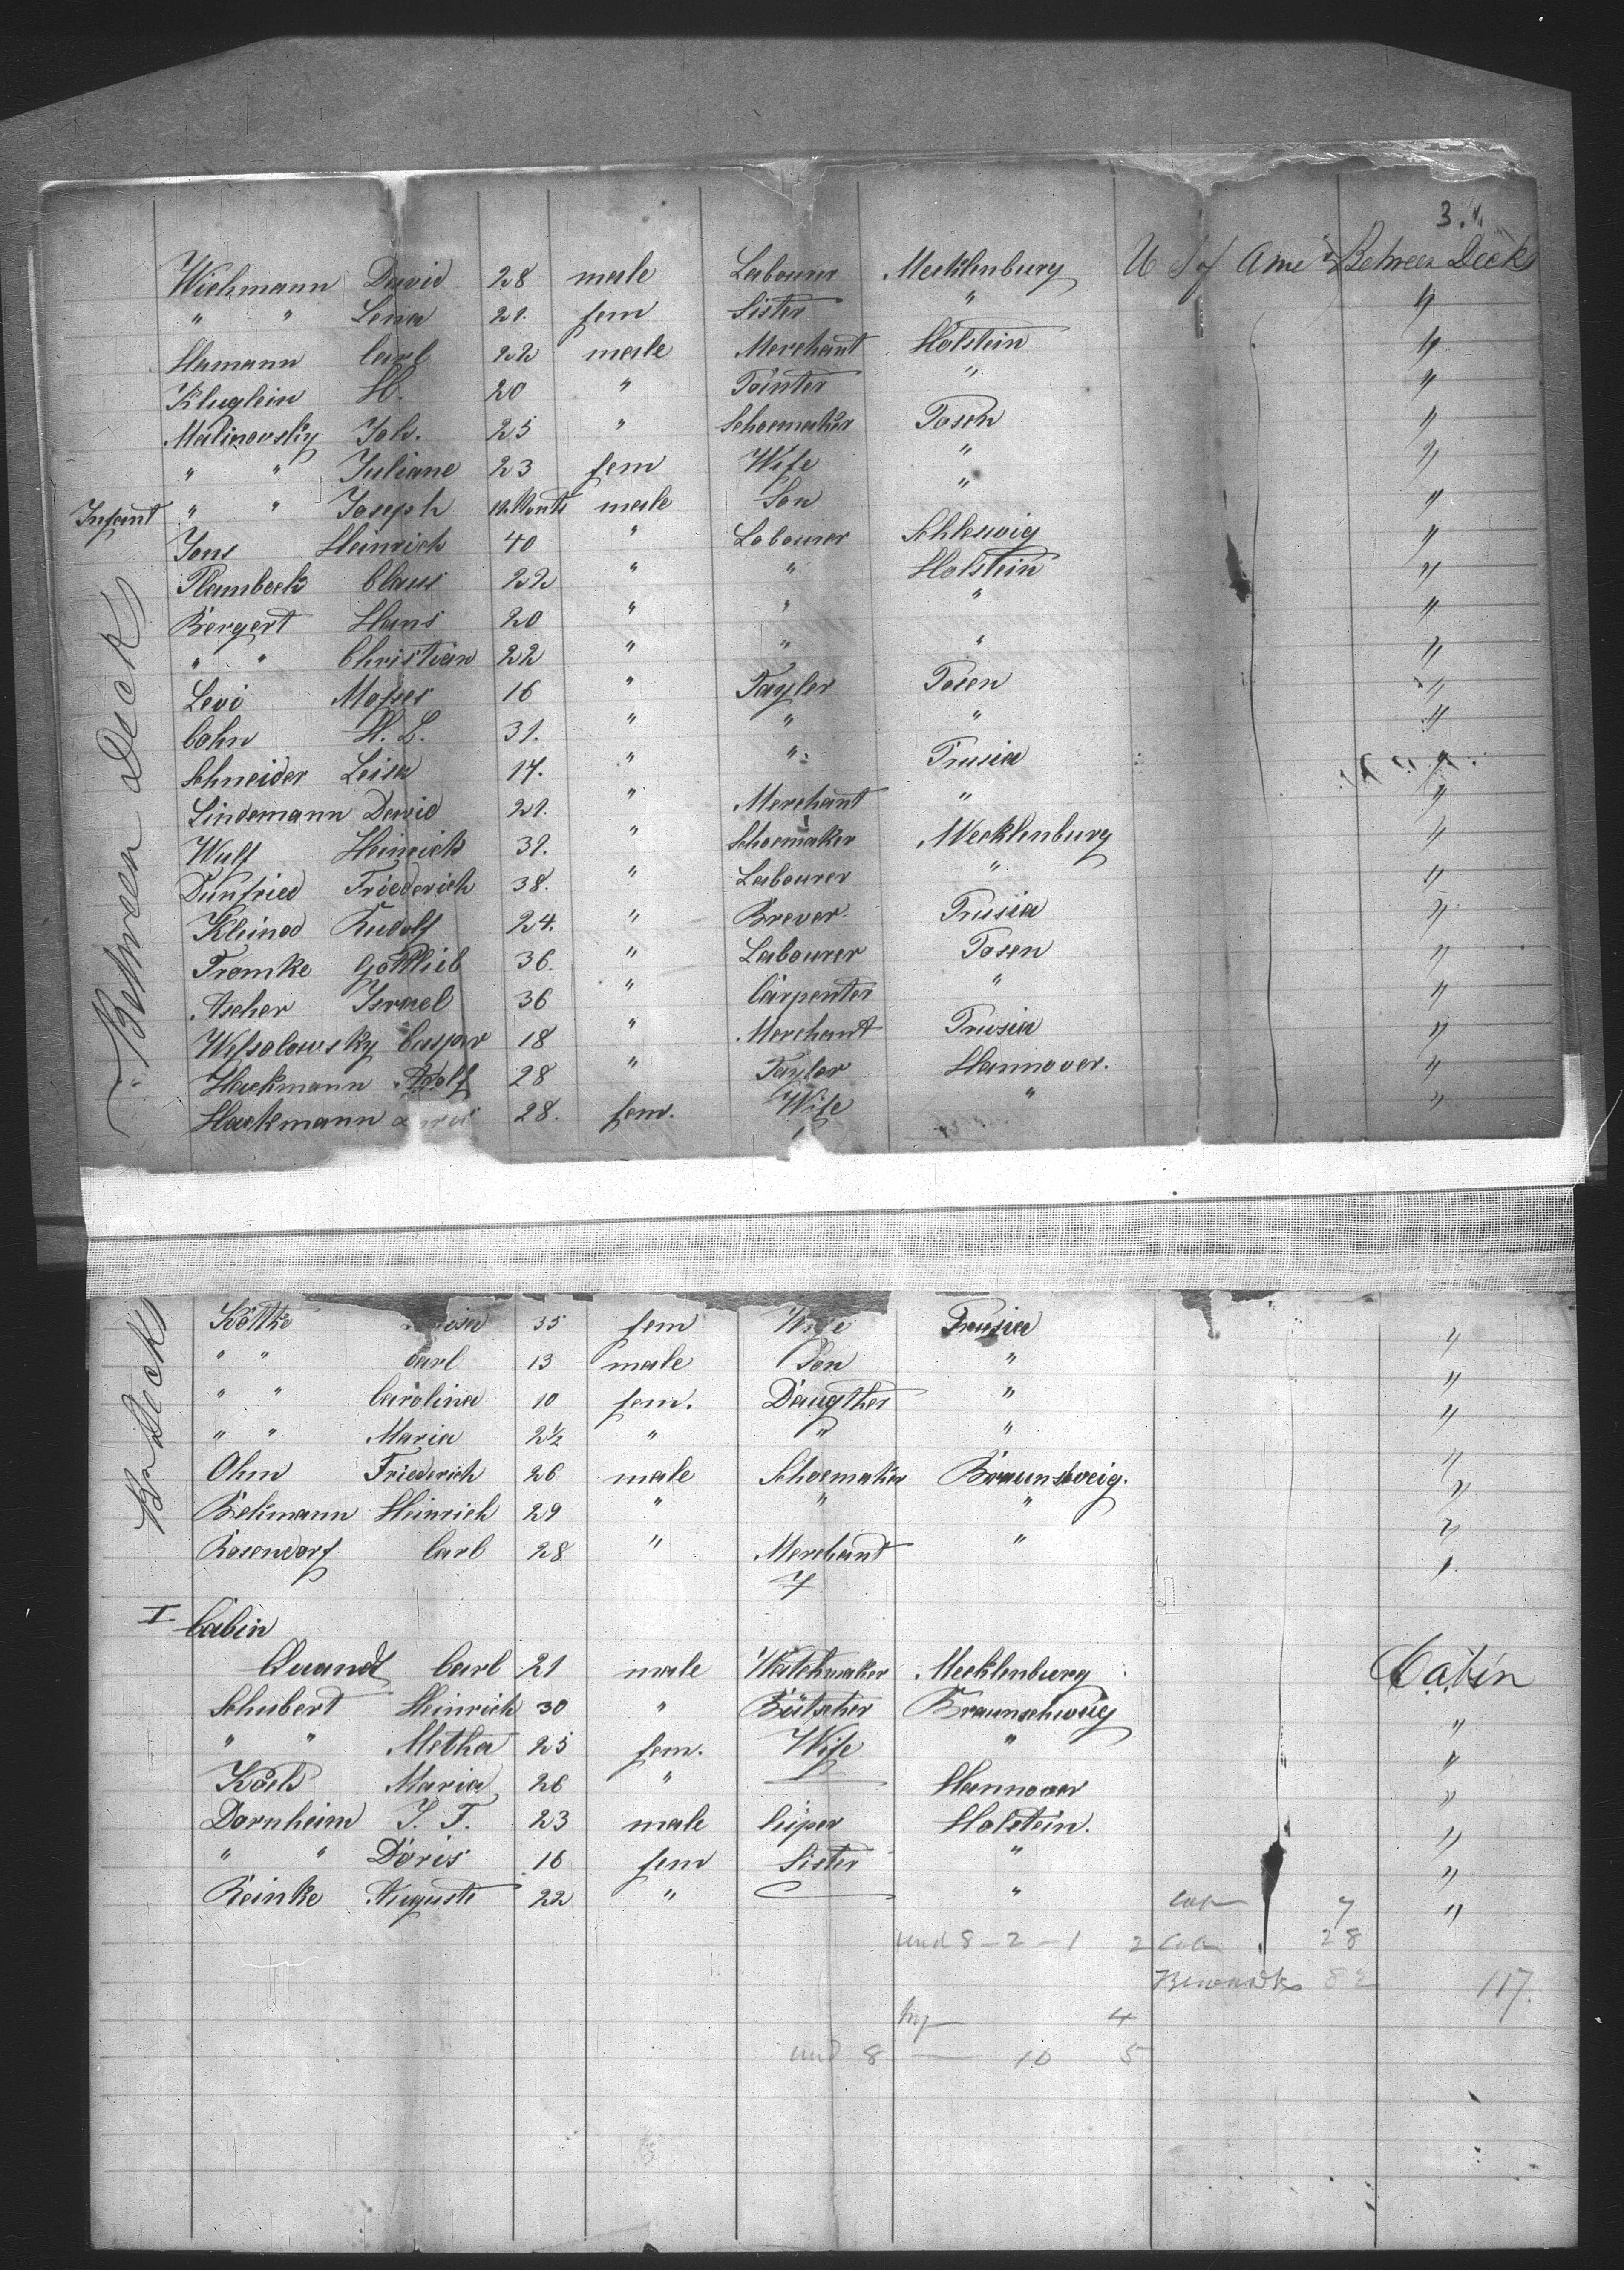 3.
Wiehmann David 28 male Labourer Mecklenburg U S of Ame Between Deck
" " Lena 21. fem Sister " "
Hamann Carl 22 male Merchant Holstein "
Kluglein H. 20 " Pointer " "
Malinovsky Joh. 25 " Schoemaker Posen "
" " Juliane 23 fem Wife " "
Infant " " Joseph male Son " "
Jons Heinrich 40 " Labourer Schleswig "
Plambeck Claus 22 " " Holstein "
Bergert Hans 20 " " " "
" " Christian 22 " " " "
Levi Moses 16 " Tayler Posen "
Cohn H. L. 31. " " " "
Schneider Leisa 17. " " Prusia "
Lindemann David 21. " Merchant " "
Wulf Heinrich 31. " Schoemaker Mecklenburg "
Dunfried Friederich 38. " Labourer " "
Kleinod Rudolf 24. " Brever Prusia "
Fromke Gottlieb 36. " Labourer Posen "
Ascher Israel 36 " Carpenter " "
Wessolowsky Caspar 18 " Merchant Prusia "
Hackmann Adolf 28 " Taylor Hannover. "
Hackmann 28. fem. Wife " "
Between Deck
Kottke 35 fem Wife Prusia "
" " Carl 13 male Son " "
" " Carolina 10 fem. Daugther " "
" " Maria 2½ " " " "
Ohm Friederich 26 male Schoemaker Braunsweig. "
Bekmann Heinrich 29 " " " "
Rosendorf Carl 28 " Merchant " "
7
Deck
I Cabin
Quandt Carl 21 male Watchmaker Mecklenburg Cabin
Schubert Heinrich 30 " Bütscher Braunschweig "
" " Metha 25 fem. Wife " "
Koch Maria 26 " — Hannover "
Dornheim J. F. 23 male Holstein. "
" " Doris 16 fem Sister " "
Reinke Auguste 22 " — " "
Cab 7
und 8 - 2 - 1 2 Cab 28
82 117.
4
und 8 — 10 5